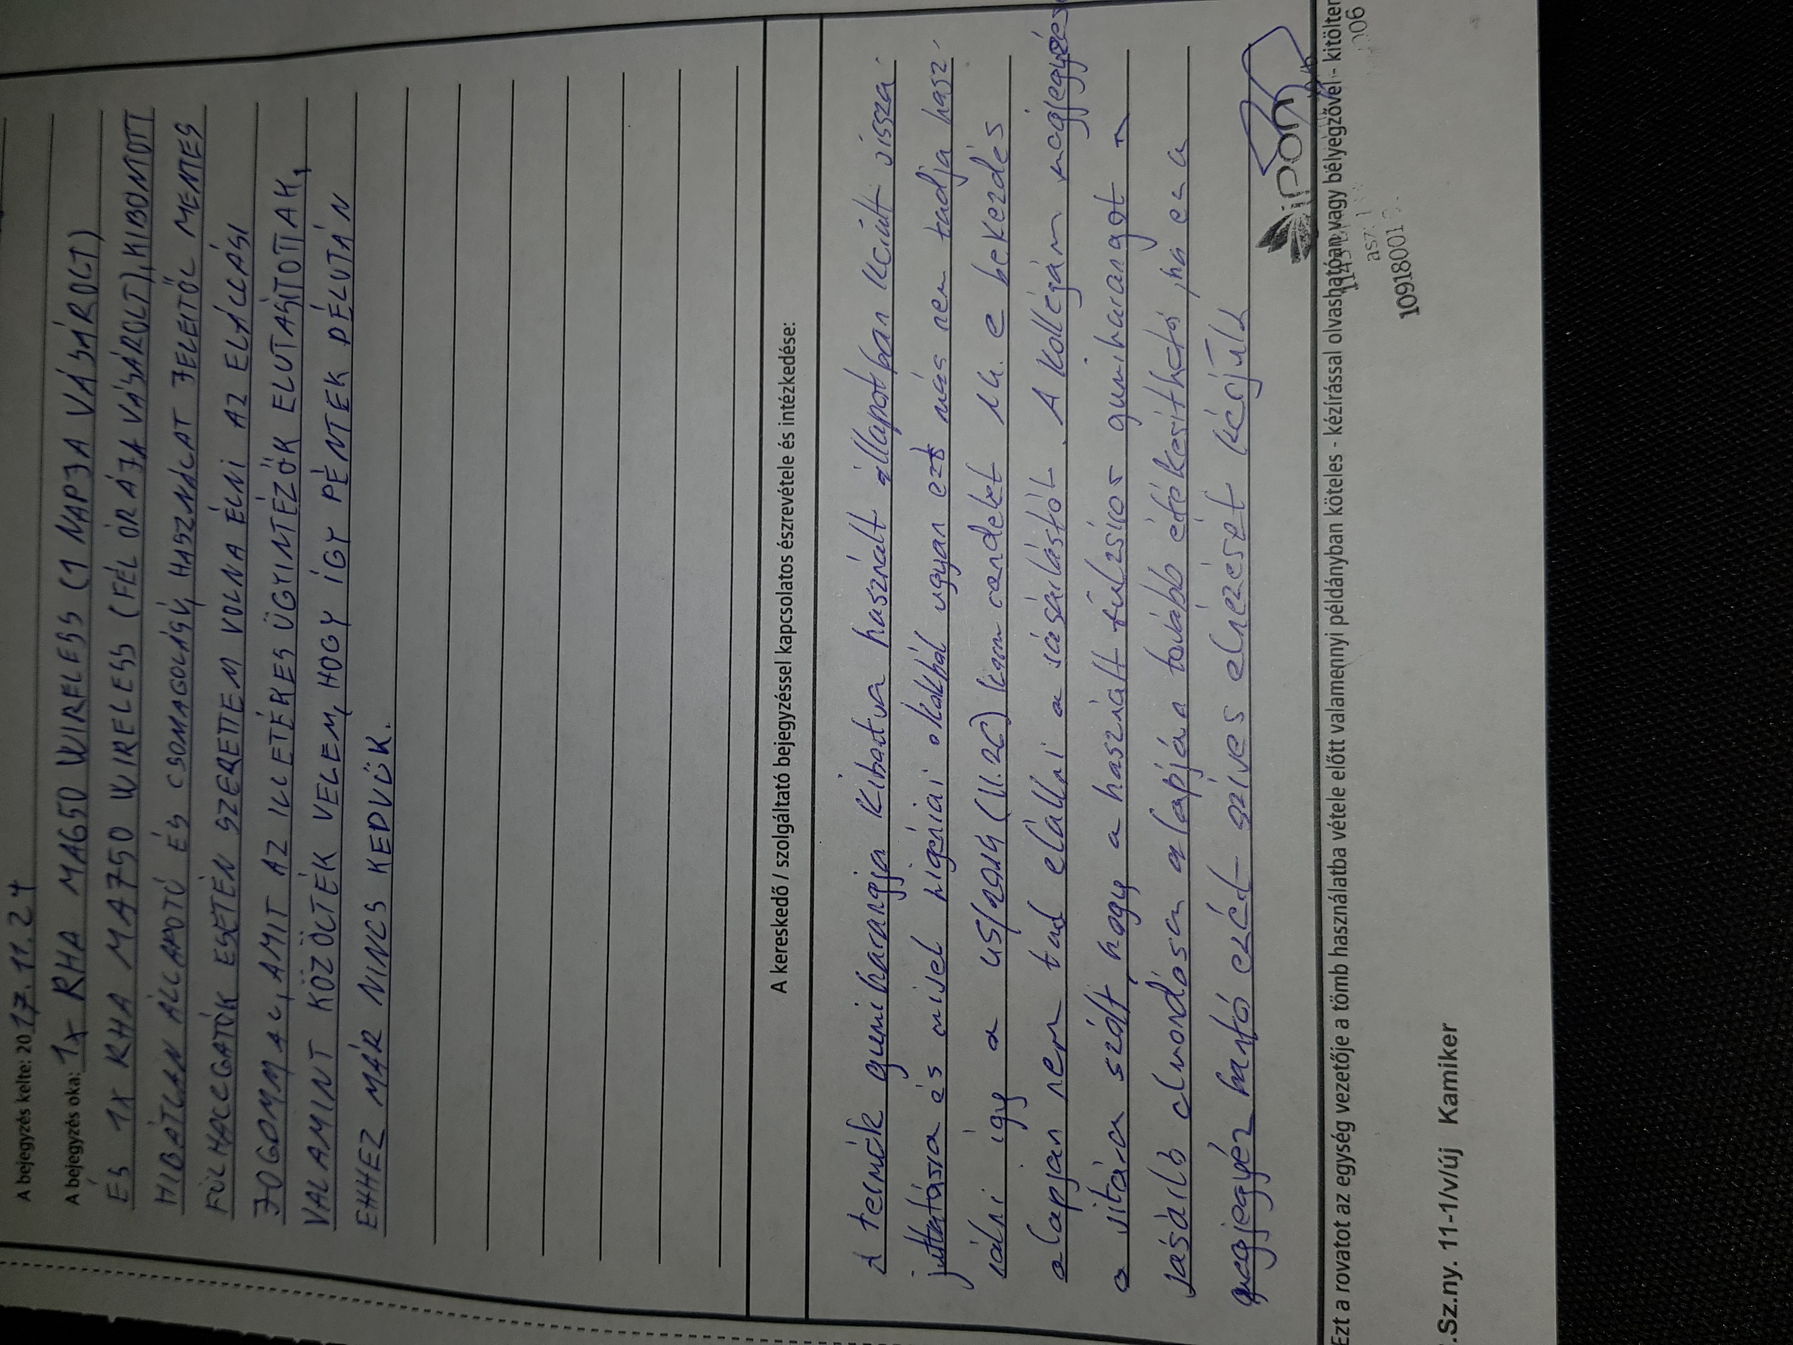 A bejegyzés kelte: 2017.11.24
A bejegyzés oka: 1x RHA MA650 WIRELESS (1 NAPJA VÁSÁROLT)
ÉS 1X RHA MA750 WIRELESS (FÉL ÓRÁJA VÁSÁROLT), KIBONTOTT
HIBÁTLAN ÁLLAPOTÚ ÉS CSOMAGOLÁSÚ, HASZNÁLAT JELEITŐL MENTES
FÜLHALLGATÓK ESETÉN SZERETTEM VOLNA ÉLNI AZ ELÁLLÁSI
JOGOMMAL, AMIT AZ ILLETÉKES ÜGYINTÉZŐK ELUTASÍTOTTAK,
VALAMINT KÖZÖLTÉK VELEM, HOGY ÍGY PÉNTEK DÉLUTÁN
EHHEZ MÁR NINCS KEDVÜK.
A kereskedő / szolgáltató bejegyzéssel kapcsolatos észrevétele és intézkedése:
A termék gumiharangja kibontva használt állapotban került vissza
juttatásra és mivel higéniai okokból ugyan ezt más nem tudja hasz-
nálni így a 45/2014 (II.26) korm rendelet e bekezdés
alapján nem tud elállni a vásárlástól. A kollégám megjegyzése
a vitára szólt, hogy a használt fülzsíros gumiharangot a
vásárló elmondása alapján tovább értékesíthető, ha ez a
megjegyzés bántó ezért szíves elnézését kérjük
iPon
1095
Ezt a rovatot az egység vezetője a tömb használatba vétele előtt valamennyi példányban köteles - kézírással olvashatóan vagy bélyegzővel - kitölten
10918001
.Sz.ny. 11-1/v/új Kamiker